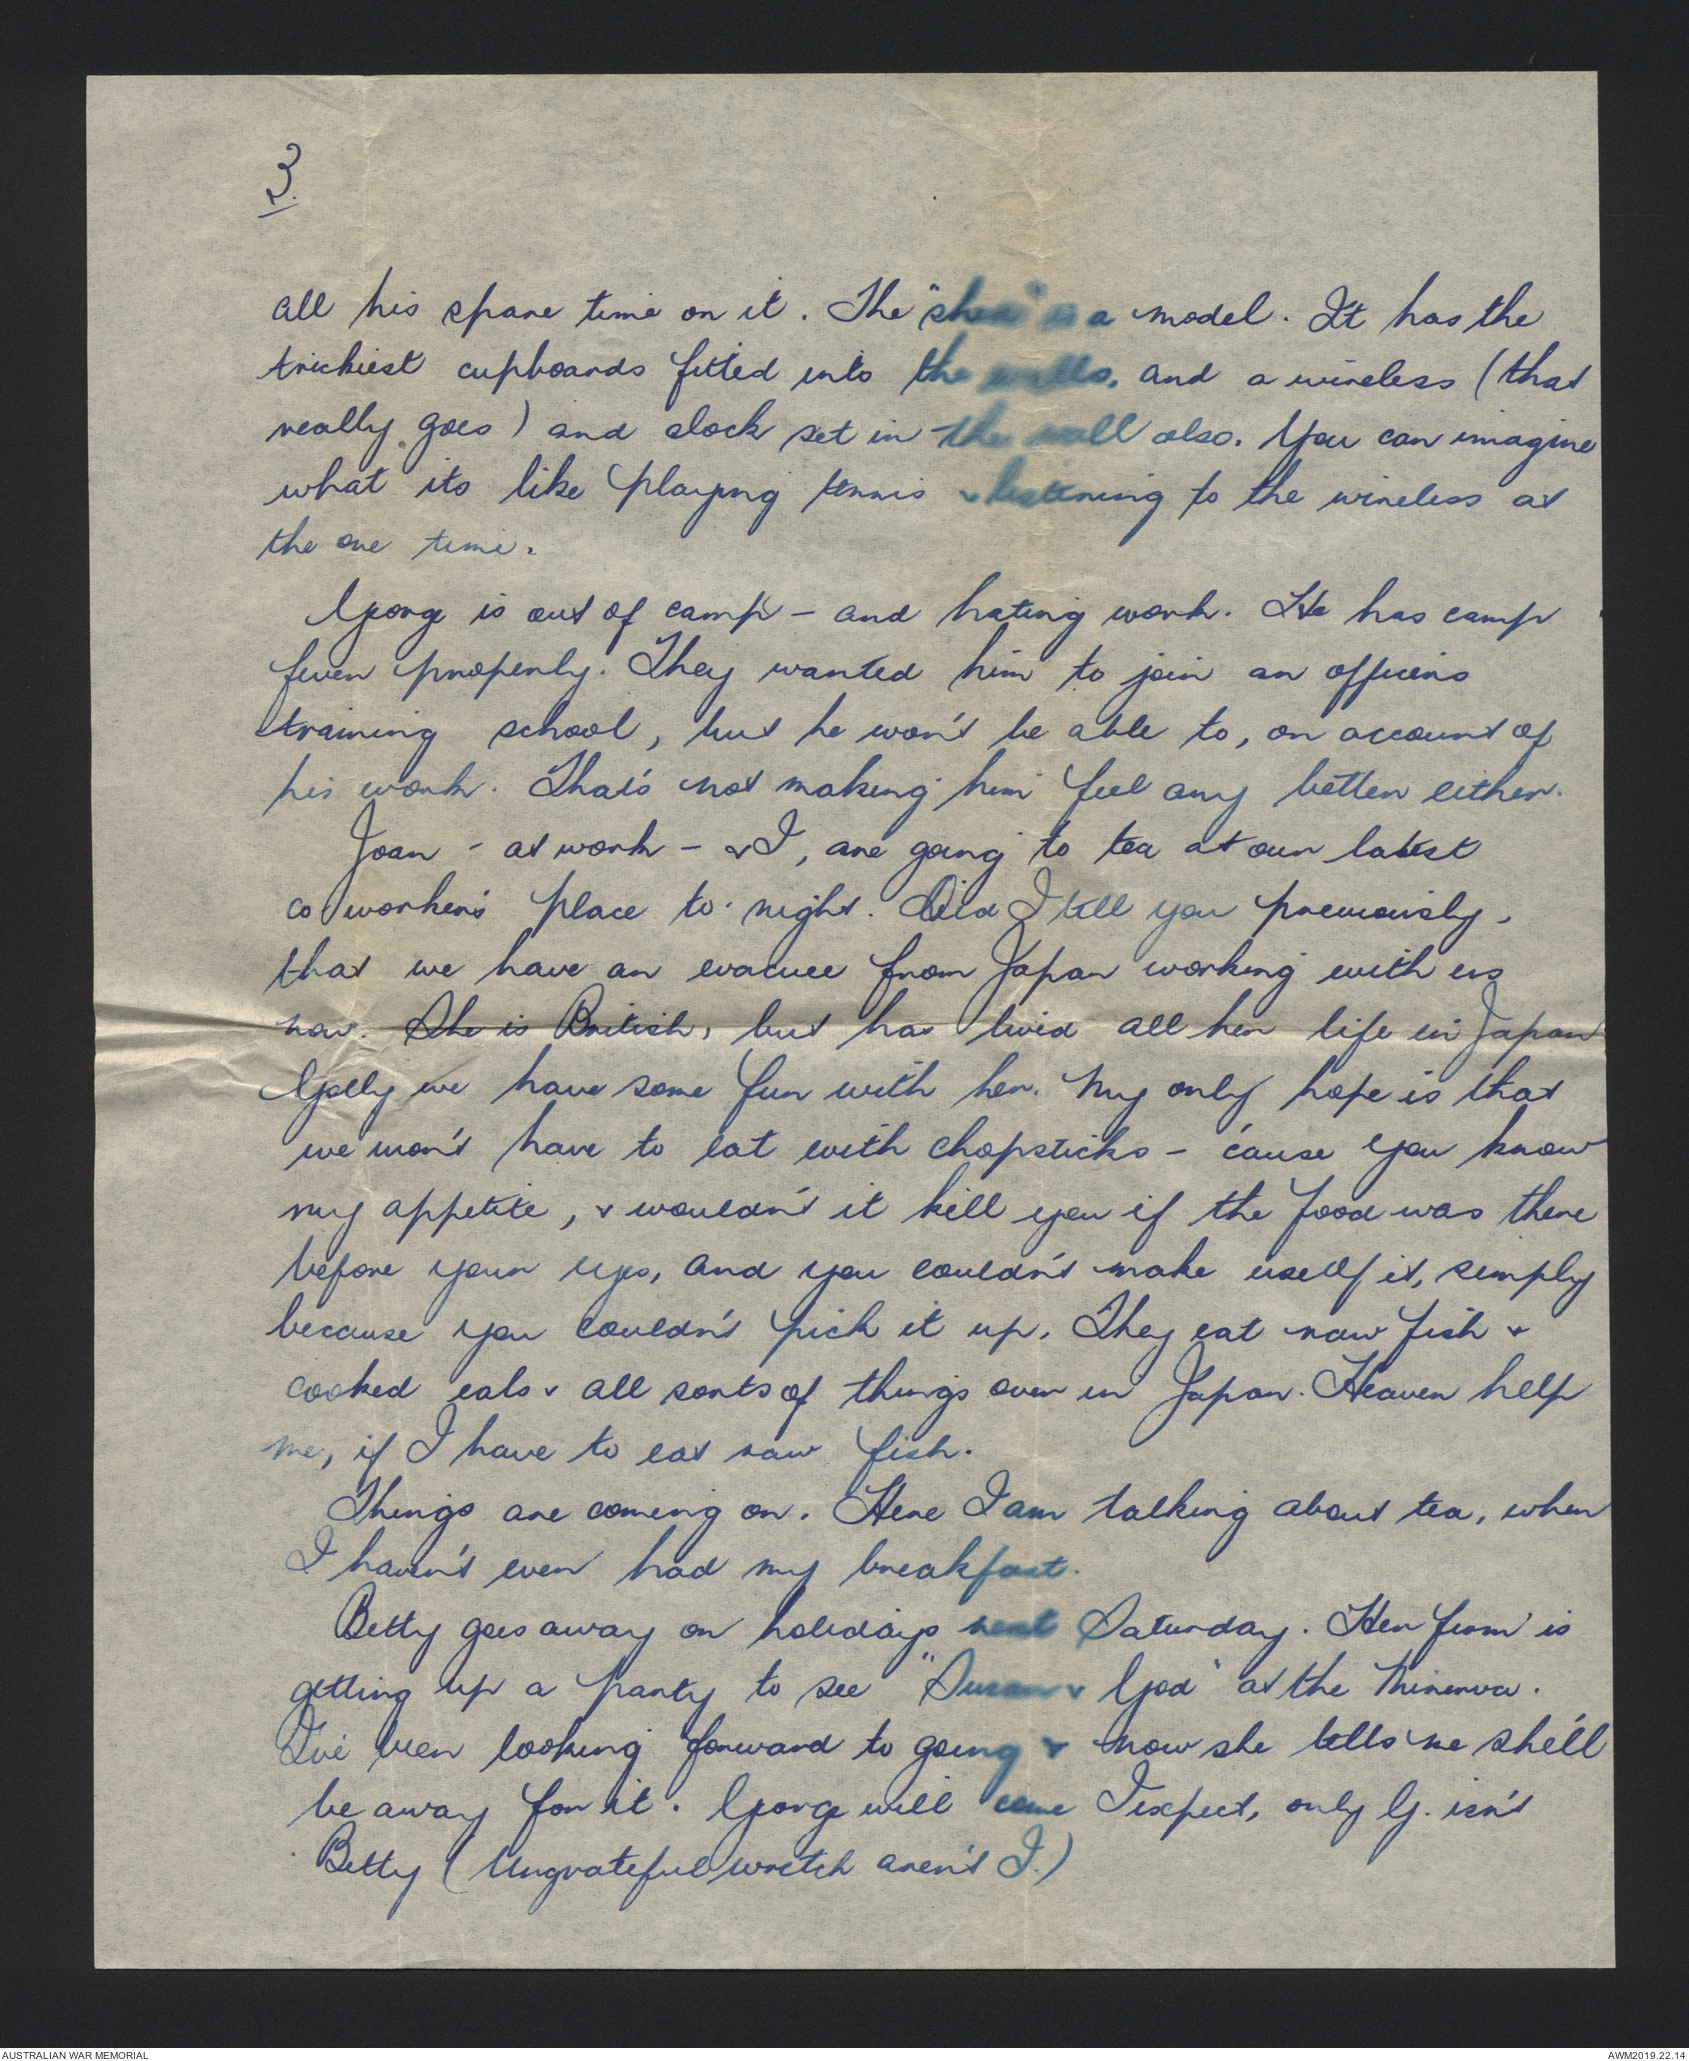 3.
all his spare time on it. The "shed" is a model. It has the
trickiest cupboards fitted into the walls, and a wireless (that
really goes) and clock set in the wall also. You can imagine
what its like playing tennis & listening to the wireless at
the one time.
George is out of camp - and hating work. He has camp
fever properly. They wanted him to join an officers
training school, but he won't be able to, on account of
his work. That's not making him feel any better either.
Joan - at work - & I, are going to tea at our latest
co workers place to-night. Did I tell you previously,
that we have an evacuee from Japan working with us
now. She is British, but has lived all her life in Japan
Golly we have some fun with her. My only hope is that
we won't have to eat with chopsticks - 'cause you know
my appetite, & wouldn't it kill you if the food was there
before your eyes, and you couldn't make use of it, simply
because you couldn't pick it up. They eat raw fish &
cooked eels & all sorts of things over in Japan. Heaven help
me, if I have to eat raw fish.
Things are coming on. Here I am talking about tea, when
I haven't even had my breakfast.
Betty goes away on holidays next Saturday. Her firm is
getting up a party to see "Susan & God" at the Minerva.
I've been looking forward to going & now she tells me she'll
be away for it. George will come I expect, only G. isn't
Betty (Ungrateful wretch aren't I.)
AUSTRALIAN WAR MEMORIAL
AWM2019.22.14